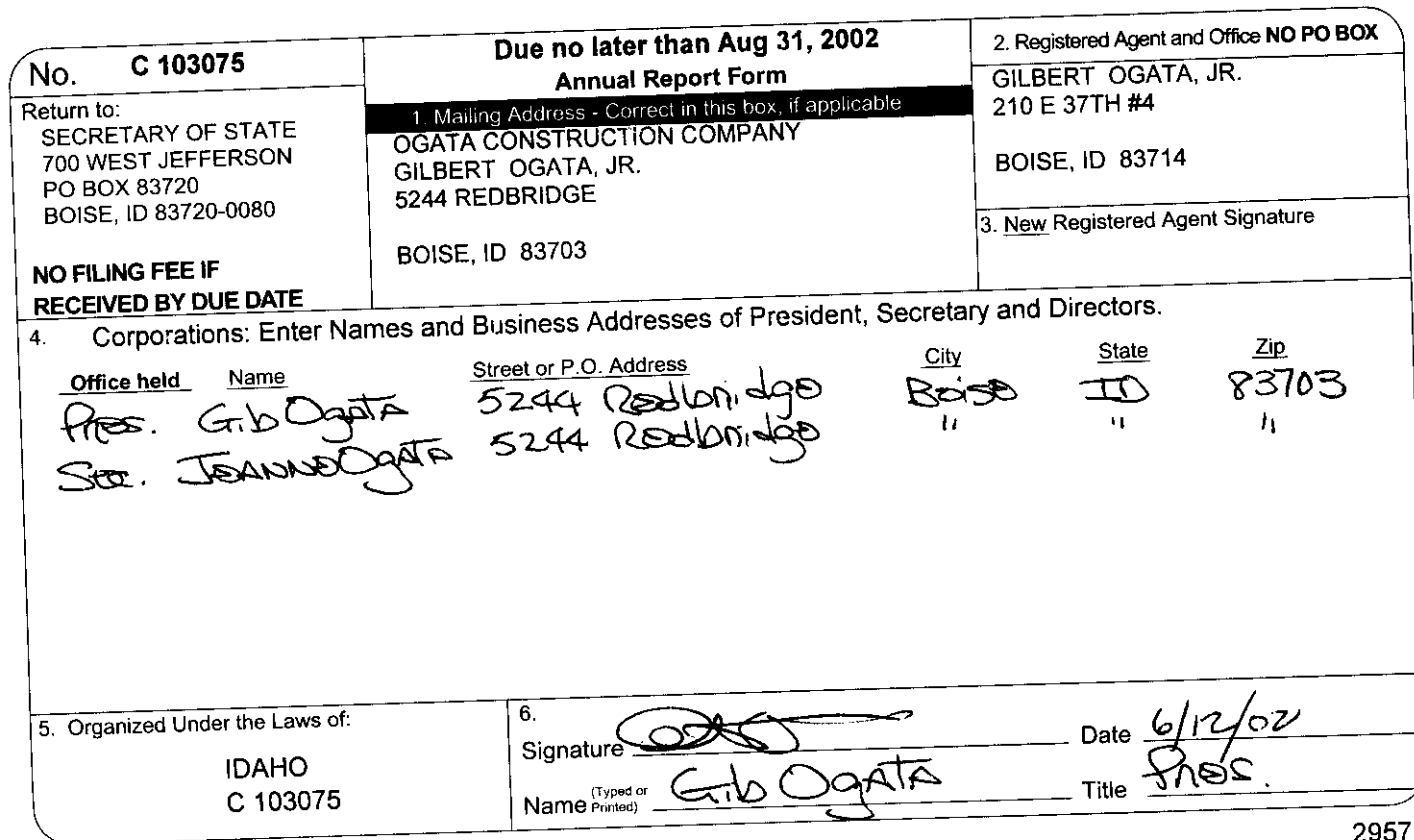 No. C 103075
Return to:
SECRETARY OF STATE
700 WEST JEFFERSON
PO BOX 83720
BOISE, ID 83720-0080
NO FILING FEE IF
RECEIVED BY DUE DATE
Due no later than Aug 31, 2002
Annual Report Form
1. Mailing Address - Correct in this box, if applicable
OGATA CONSTRUCTION COMPANY
GILBERT OGATA, JR.
5244 REDBRIDGE
BOISE, ID 83703
2. Registered Agent and Office NO PO BOX
GILBERT OGATA, JR.
210 E 37TH #4
BOISE, ID 83714
3. New Registered Agent Signature
4. Corporations: Enter Names and Business Addresses of President, Secretary and Directors.
Office held Name Street or P.O. Address City State Zip
Pres. Gib Ogata 5244 Redbridge Boise ID 83703
Sec. JEANNE Ogata 5244 Redbridge " " "
5. Organized Under the Laws of:
IDAHO
C 103075
6.
Signature Date 6/12/02
Name (Typed or Printed) Gib Ogata Title Pres.
2957